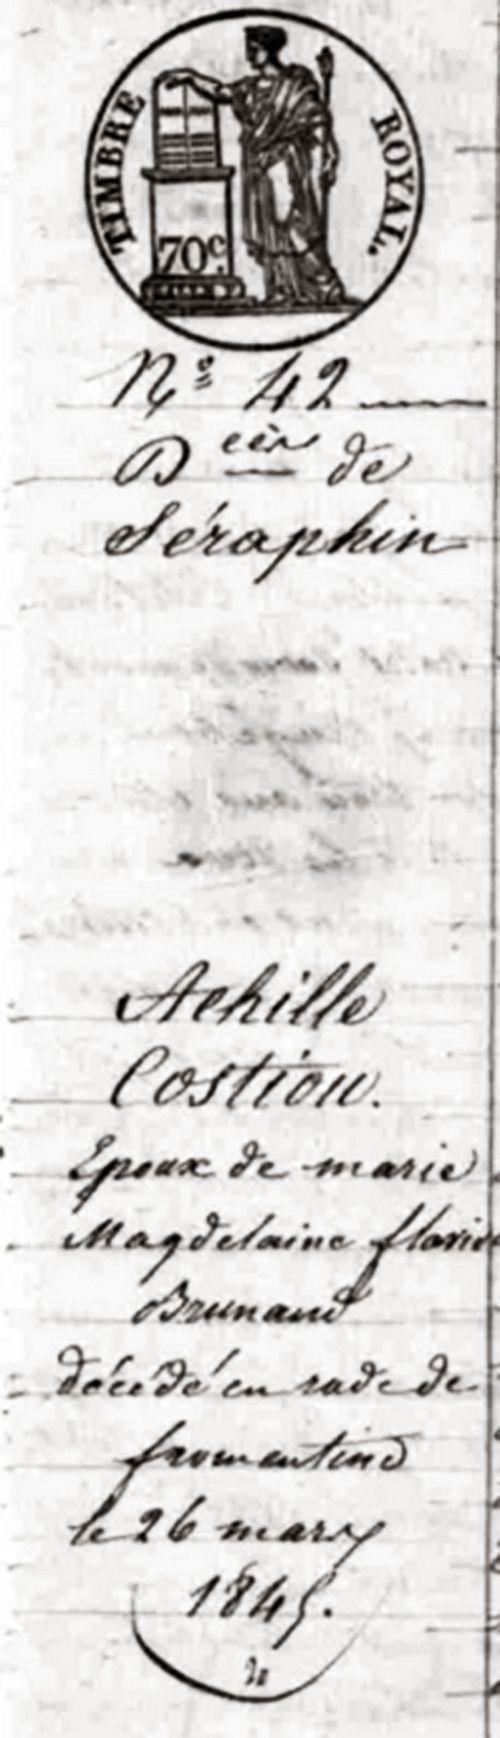 TIMBRE ROYAL.
70c.
No 42
Décès de
Séraphin
Achille
Costiou.
Epoux de marie
Magdelaine flavie
Brunaud
décédé en rade de
fromentine
le 26 mars
1845.